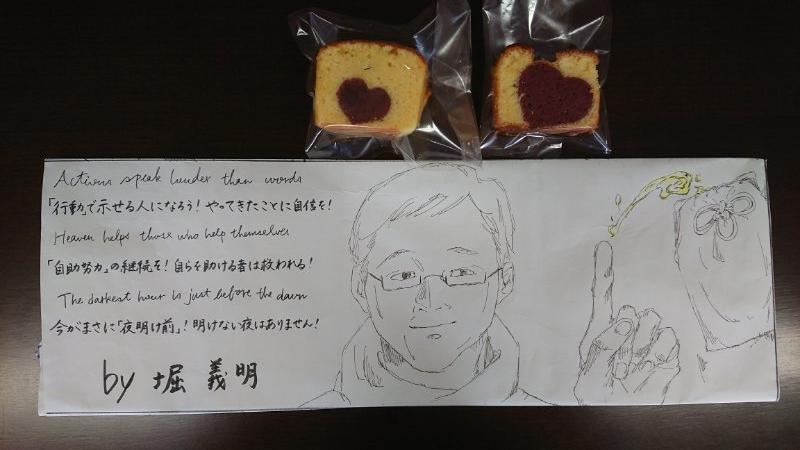 Actions speak louder than words
「行動」で示せる人になろう！やってきたことに自信を！
Heaven helps those who help themselves
「自助努力」の継続を！自らを助ける者は救われる！
The darkest hour is just before the dawn
今がまさに「夜明け前」！明けない夜はありません！
by 堀 義明